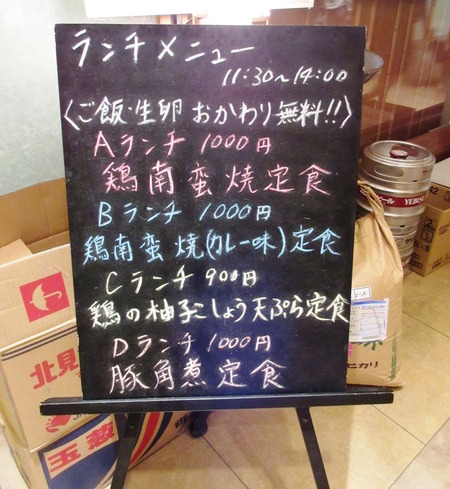 ランチメニュー
11:30～14:00
〈ご飯・生卵 おかわり 無料!!〉
Aランチ 1000円
鶏南蛮焼定食
Bランチ 1000円
鶏南蛮焼(カレー味)定食
Cランチ 900円
鶏の柚子こしょう天ぷら定食
Dランチ 1000円
豚角煮定食
北見
玉葱
YEBISU
ヒカリ